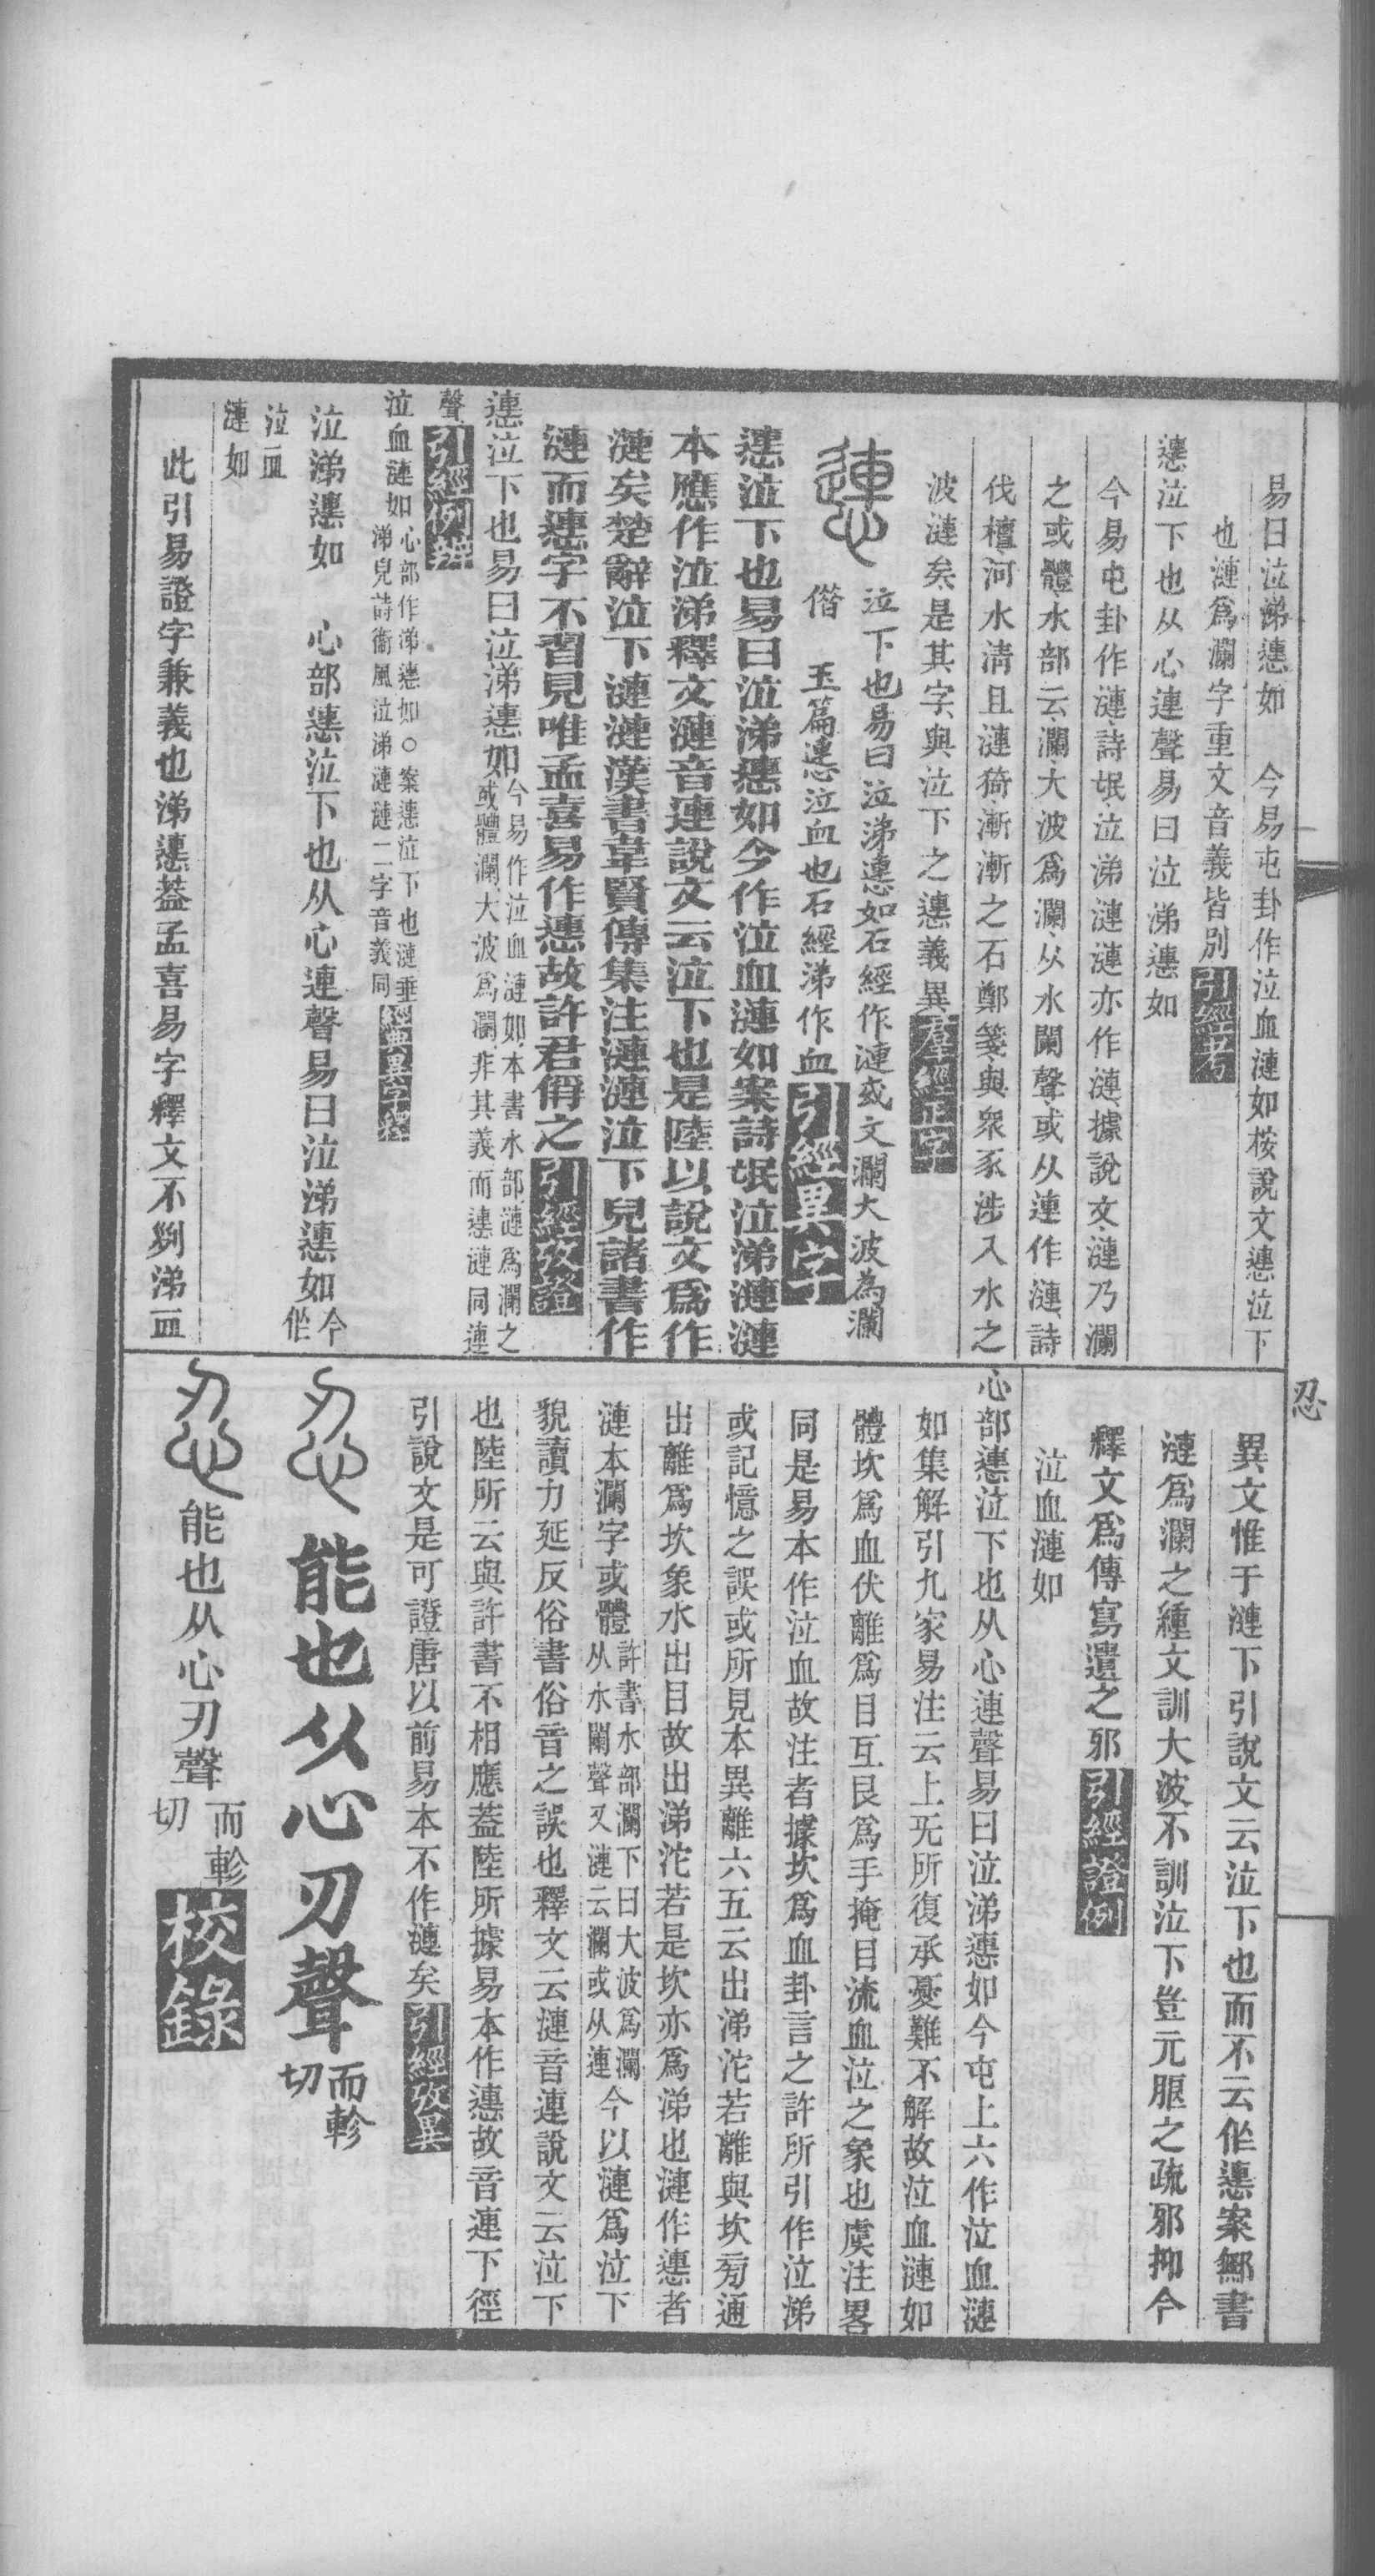 易曰泣涕㦁如　今易屯卦作泣血漣如桉說文㦁泣下
也漣爲瀾字重文音義皆別引經考
㦁泣下也从心連聲易曰泣涕㦁如
今易屯卦作漣詩氓泣涕漣漣亦作漣據說文漣乃瀾
之或體水部云瀾大波爲瀾从水闌聲或从連作漣詩
伐檀河水清且漣猗漸漸之石鄭箋與衆豕涉入水之
波漣矣是其字與泣下之㦁義異羣經正字
㦁泣下也易曰泣涕㦁如石經作漣或文瀾大波為瀾
偺　玉篇㦁泣血也石經涕作血引經異字
㦁泣下也易曰泣涕㦁如今作泣血漣如案詩氓泣涕漣漣
本應作泣涕釋文漣音連說文云泣下也是陸以說文爲作
漣矣楚辭泣下漣漣漢書韋賢傳集注漣漣泣下皃諸書作
漣而㦁字不習見唯孟喜易作㦁故許君偁之引經攷證
㦁泣下也易曰泣涕㦁如今易作泣血漣如本書水部漣爲瀾之或體瀾大波爲瀾非其義而㦁漣同連
聲引經例辨
泣血漣如心部作涕㦁如○案㦁泣下也漣垂涕皃詩衞風泣涕漣漣二字音義同經典異字
泣涕㦁如　心部㦁泣下也从心連聲易曰泣涕㦁如今作
泣血
漣如
此引易證字兼義也涕㦁葢孟喜易字釋文不列涕血
忍
異文惟于漣下引說文云泣下也而不云作㦁案鄦書
漣爲瀾之緟文訓大波不訓泣下豈元朖之疏邪抑今
釋文爲傳寫遺之邪引經證例
泣血漣如
心部㦁泣下也从心連聲易曰泣涕㦁如今屯上六作泣血漣
如集解引九家易注云上旡所復承憂難不解故泣血漣如
體坎爲血伏離爲目互艮爲手掩目流血泣之象也虞注畧
同是易本作泣血故注者據坎爲血卦言之許所引作泣涕
或記憶之誤或所見本異離六五云出涕沱若離與坎㫄通
出離爲坎象水出目故出涕沱若是坎亦爲涕也漣作㦁者
漣本瀾字或體許書水部瀾下曰大波爲瀾从水闌聲又漣云瀾或从連今以漣爲泣下
貌讀力延反俗書俗音之誤也釋文云漣音連說文云泣下
也陸所云與許書不相應葢陸所據易本作㦁故音連下徑
引說文是可證唐以前易本不作漣矣引經攷異
忍能也从心刃聲而軫切
忍能也从心刃聲而軫切校錄